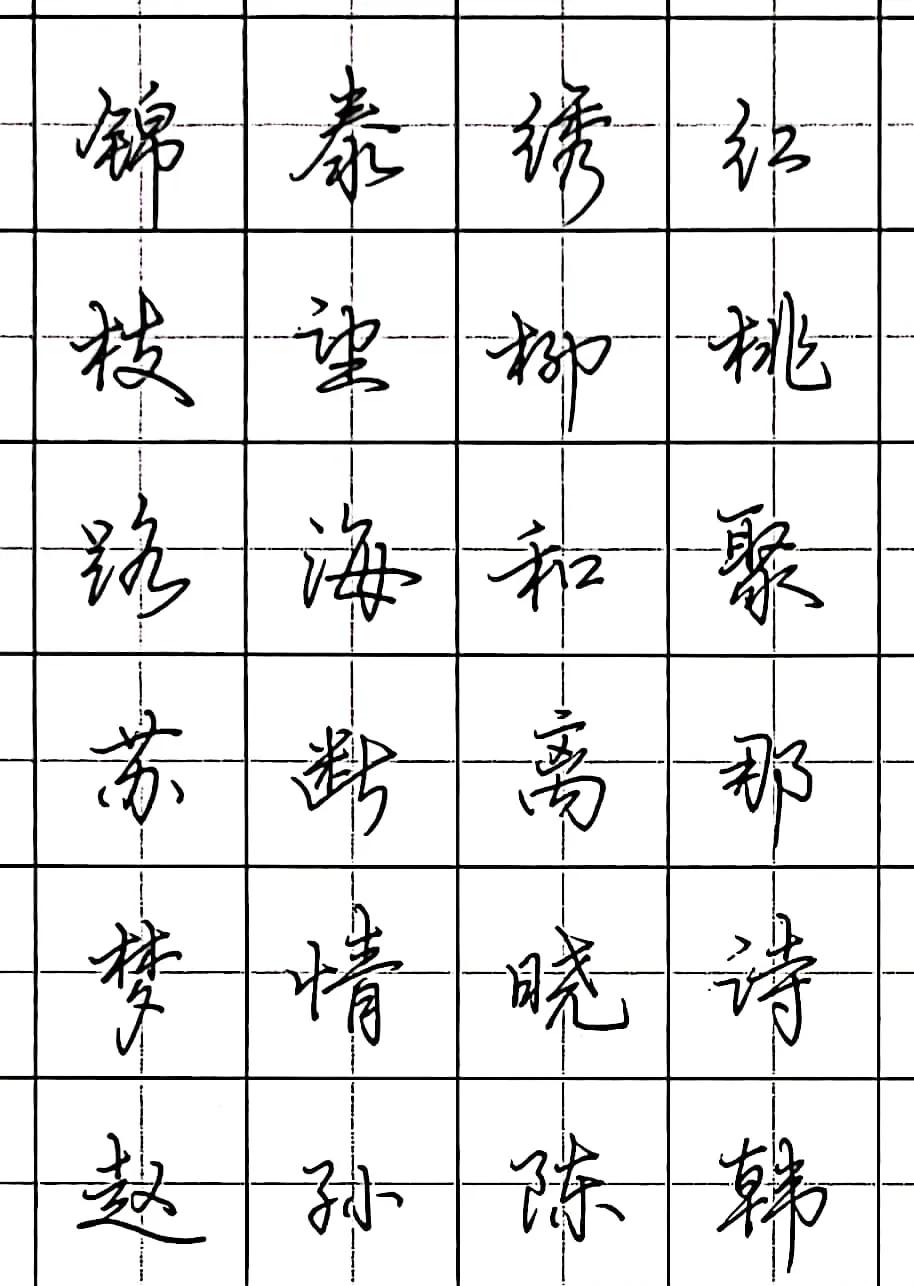 锦泰绣红
枝望柳桃
路海和聚
苏断离那
梦情晓诗
赵孙陈韩